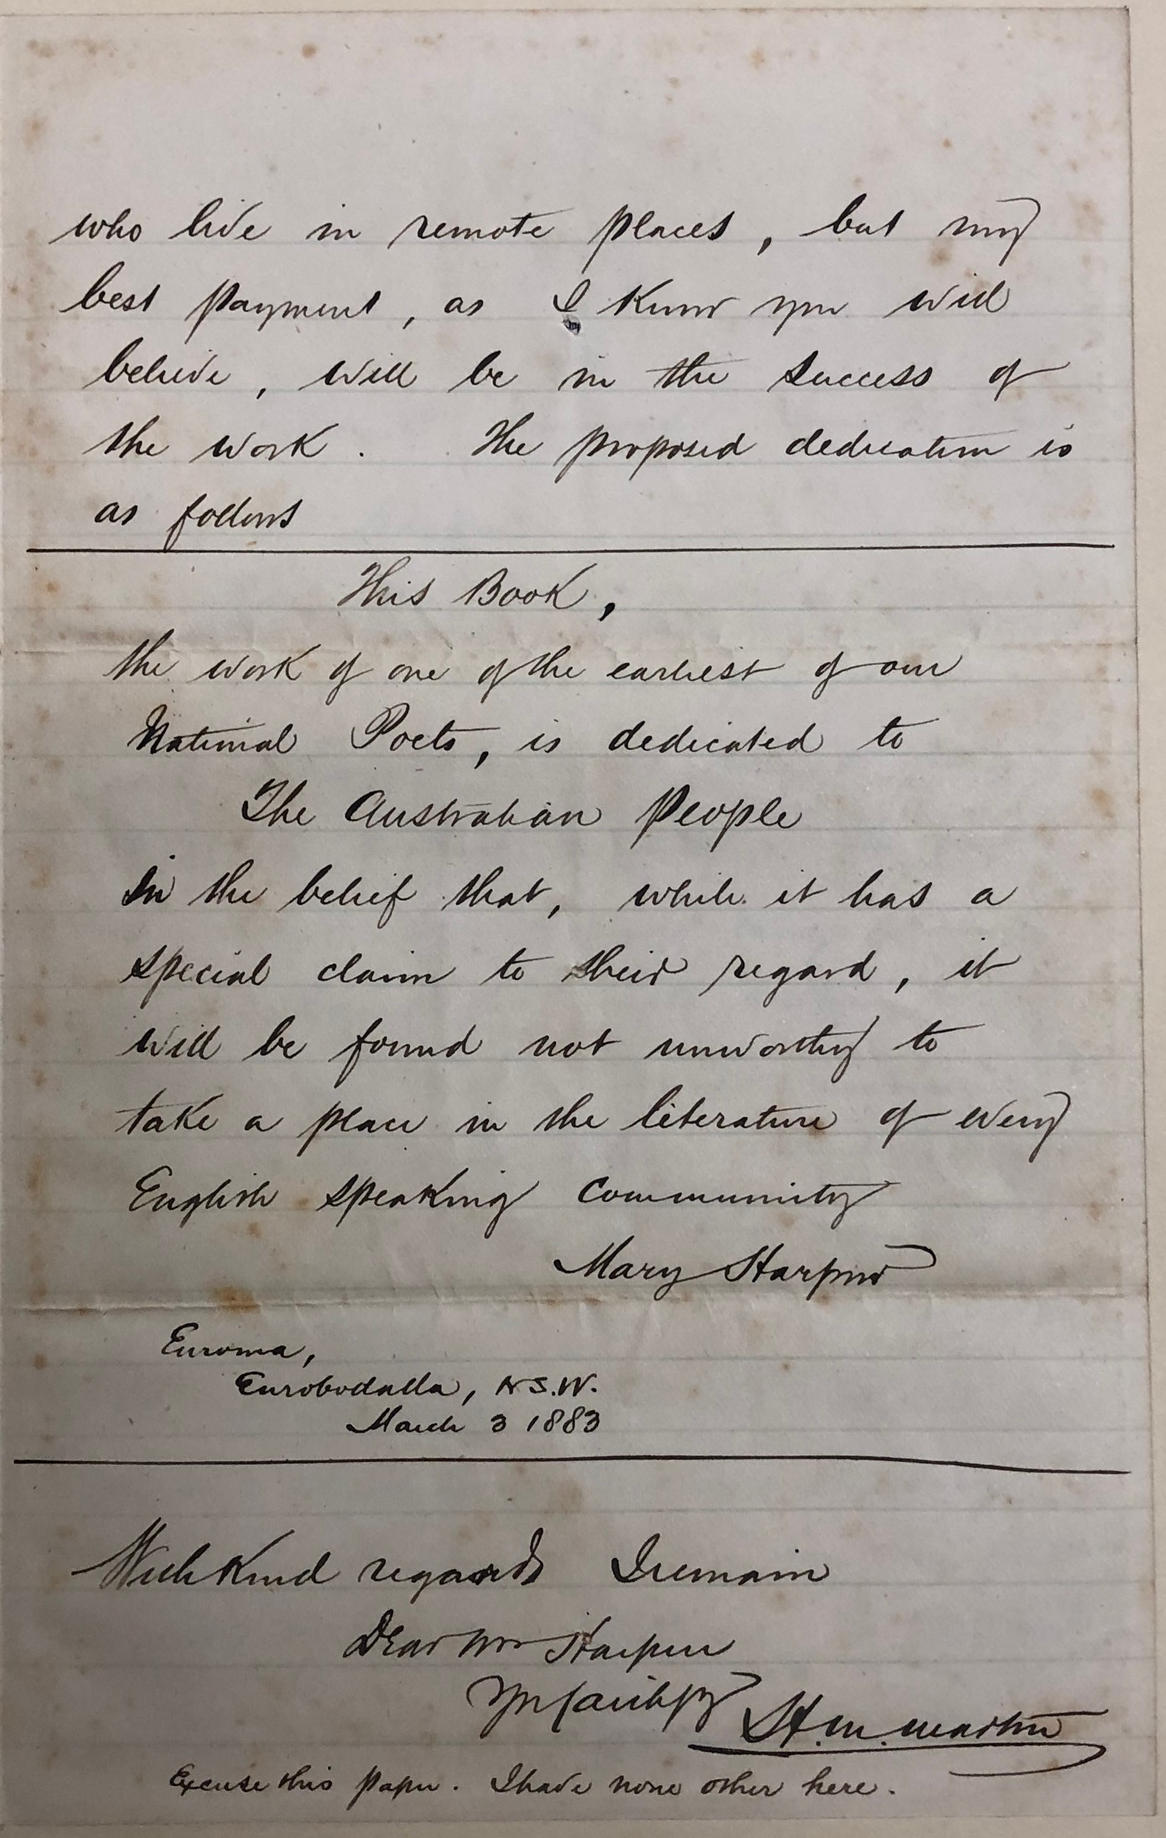 who live in remote places, but my
best payment, as I know you will
believe, will be in the success of
the work. The proposed dedication is
as follows
This Book,
the work of one of the earliest of our
National Poets, is dedicated to
The Australian People
In the belief that, while it has a
special claim to their regard, it
will be found not unworthy to
take a place in the literature of every
English speaking community
Mary Harpur
Euroma,
Eurobodalla, N.S.W.
March 3 1883
With kind regards I remain
Dear Mrs Harpur
Yrs faithfy
H.M. Martin
Excuse this paper. I have none other here.